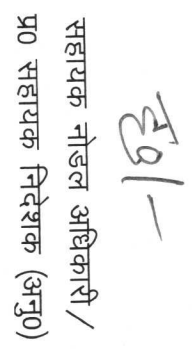 ह0/-
सहायक नोडल अधिकारी/
प्र0 सहायक निदेशक (अनु0)